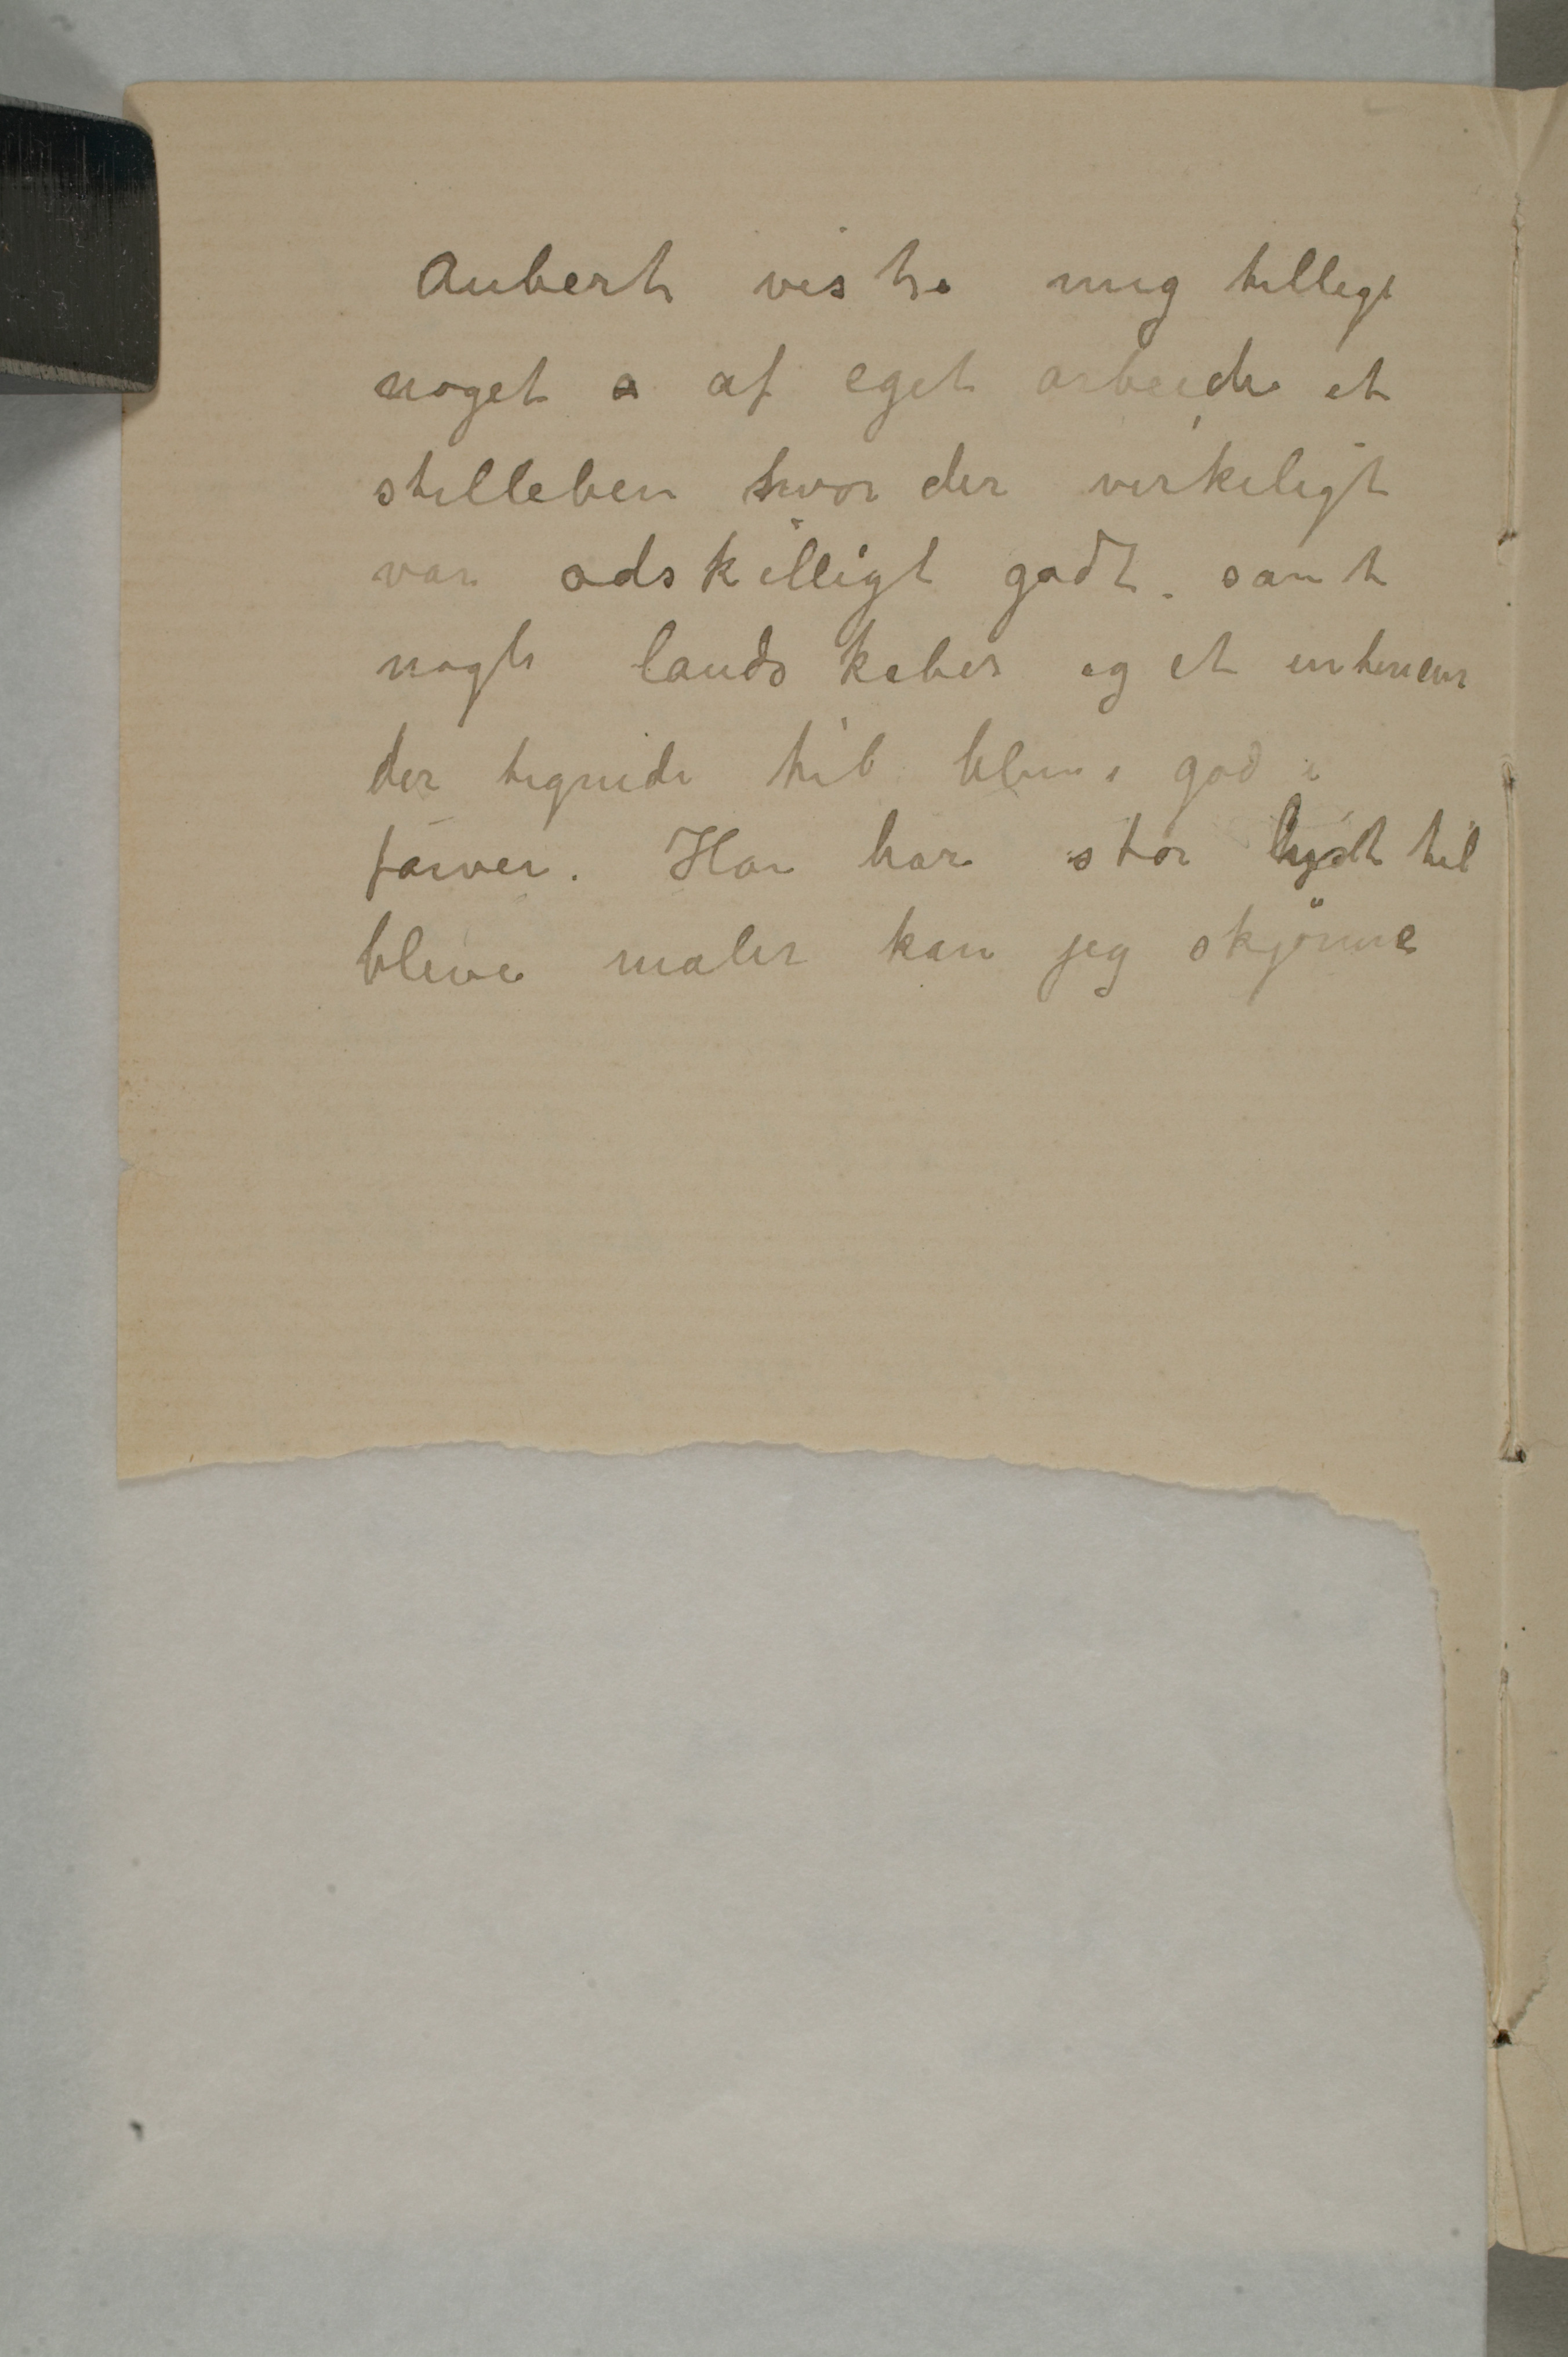 Aubert viste mig tillige
noget a af eget arbeide et
stilleben hvor der virkeligt
var adskilligt godt. samt
nogle landskaber og et interieur
der tegnede til blive god i
farver. Han har stor lyst til
blive maler kan jeg skjönne